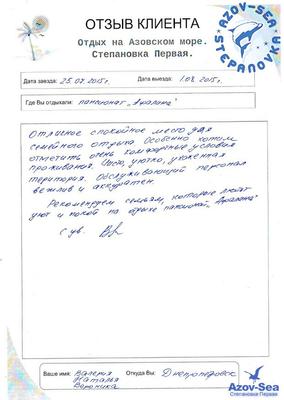 ОТЗЫВ КЛИЕНТА
Отдых на Азовском море.
Степановка Первая.
AZOV-SEA
STEPANOVKA
Дата заезда: 25.07.2015г.
Дата выезда: 1.08.2015г.
Где Вы отдыхали: пансионат "Аквалона"
Отличное спокойное место для
семейного отдыха Особенно хотим
отметить очень комфортные условия
проживания. Чисто, уютно, ухоженная
територия. Обслуживающий персонал
вежлив и аккуратен.
Рекомендуем семьям, которые любят
уют и покой на отдыхе пансионат
С ув.
Ваше имя: Валерия
Наталья
Вероника
Откуда Вы: Днепропетровск
Azov-Sea
Степановка Первая